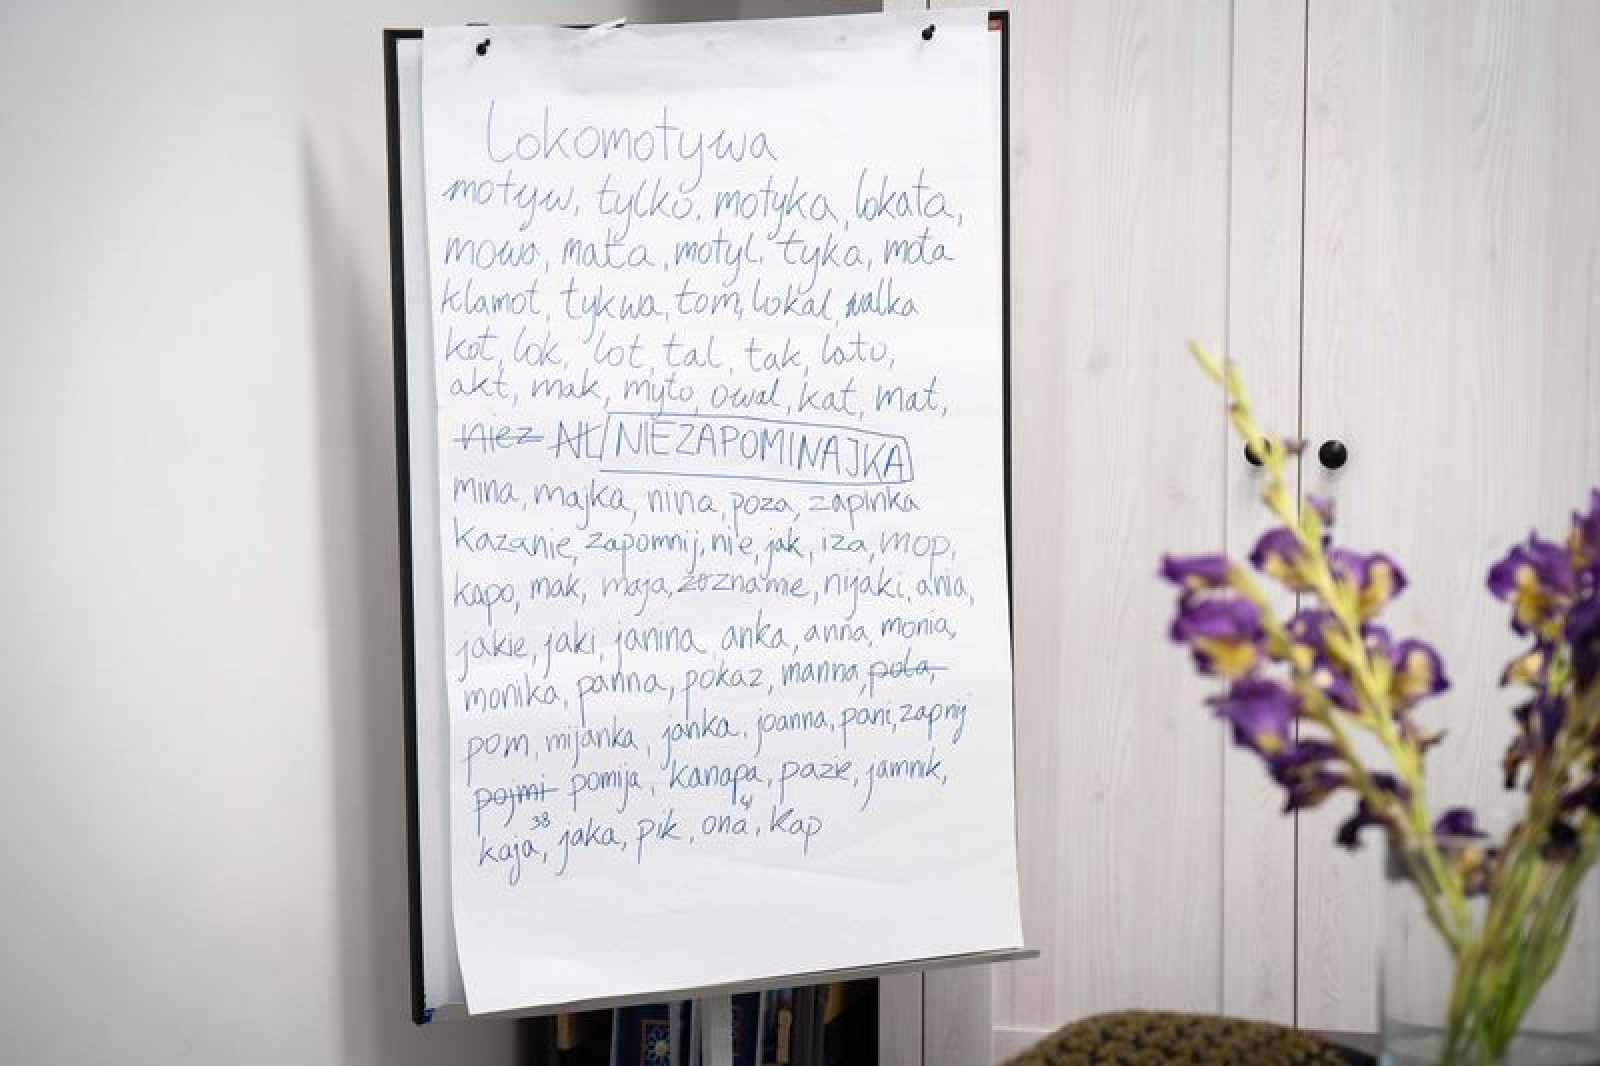 Lokomotywa
motyw, tylko, motyka, lokata,
mowa, mata, motyl, tyka, mota
klamot, tykwa, tom, lokal, walka
kot, lok, lot, tal, tak, lato,
akt, mak, myto, owal, kat, mat,
niez NIEZAPOMINAJKA
mina, majka, nina, poza, zapinka
kazanie, zapomnij, nie, jak, iza, mop,
kapo, mak, maja, nijaki, ania,
jakie, jaki, janina, anka, anna, monia,
monika, panna, pokaz, manna, pola,
pom, mijanka, janka, joanna, pani, zapnij
pojmi pomija, kanapa, pazie, jamnik,
kaja, 38 jaka, pik, ona, 41 kap